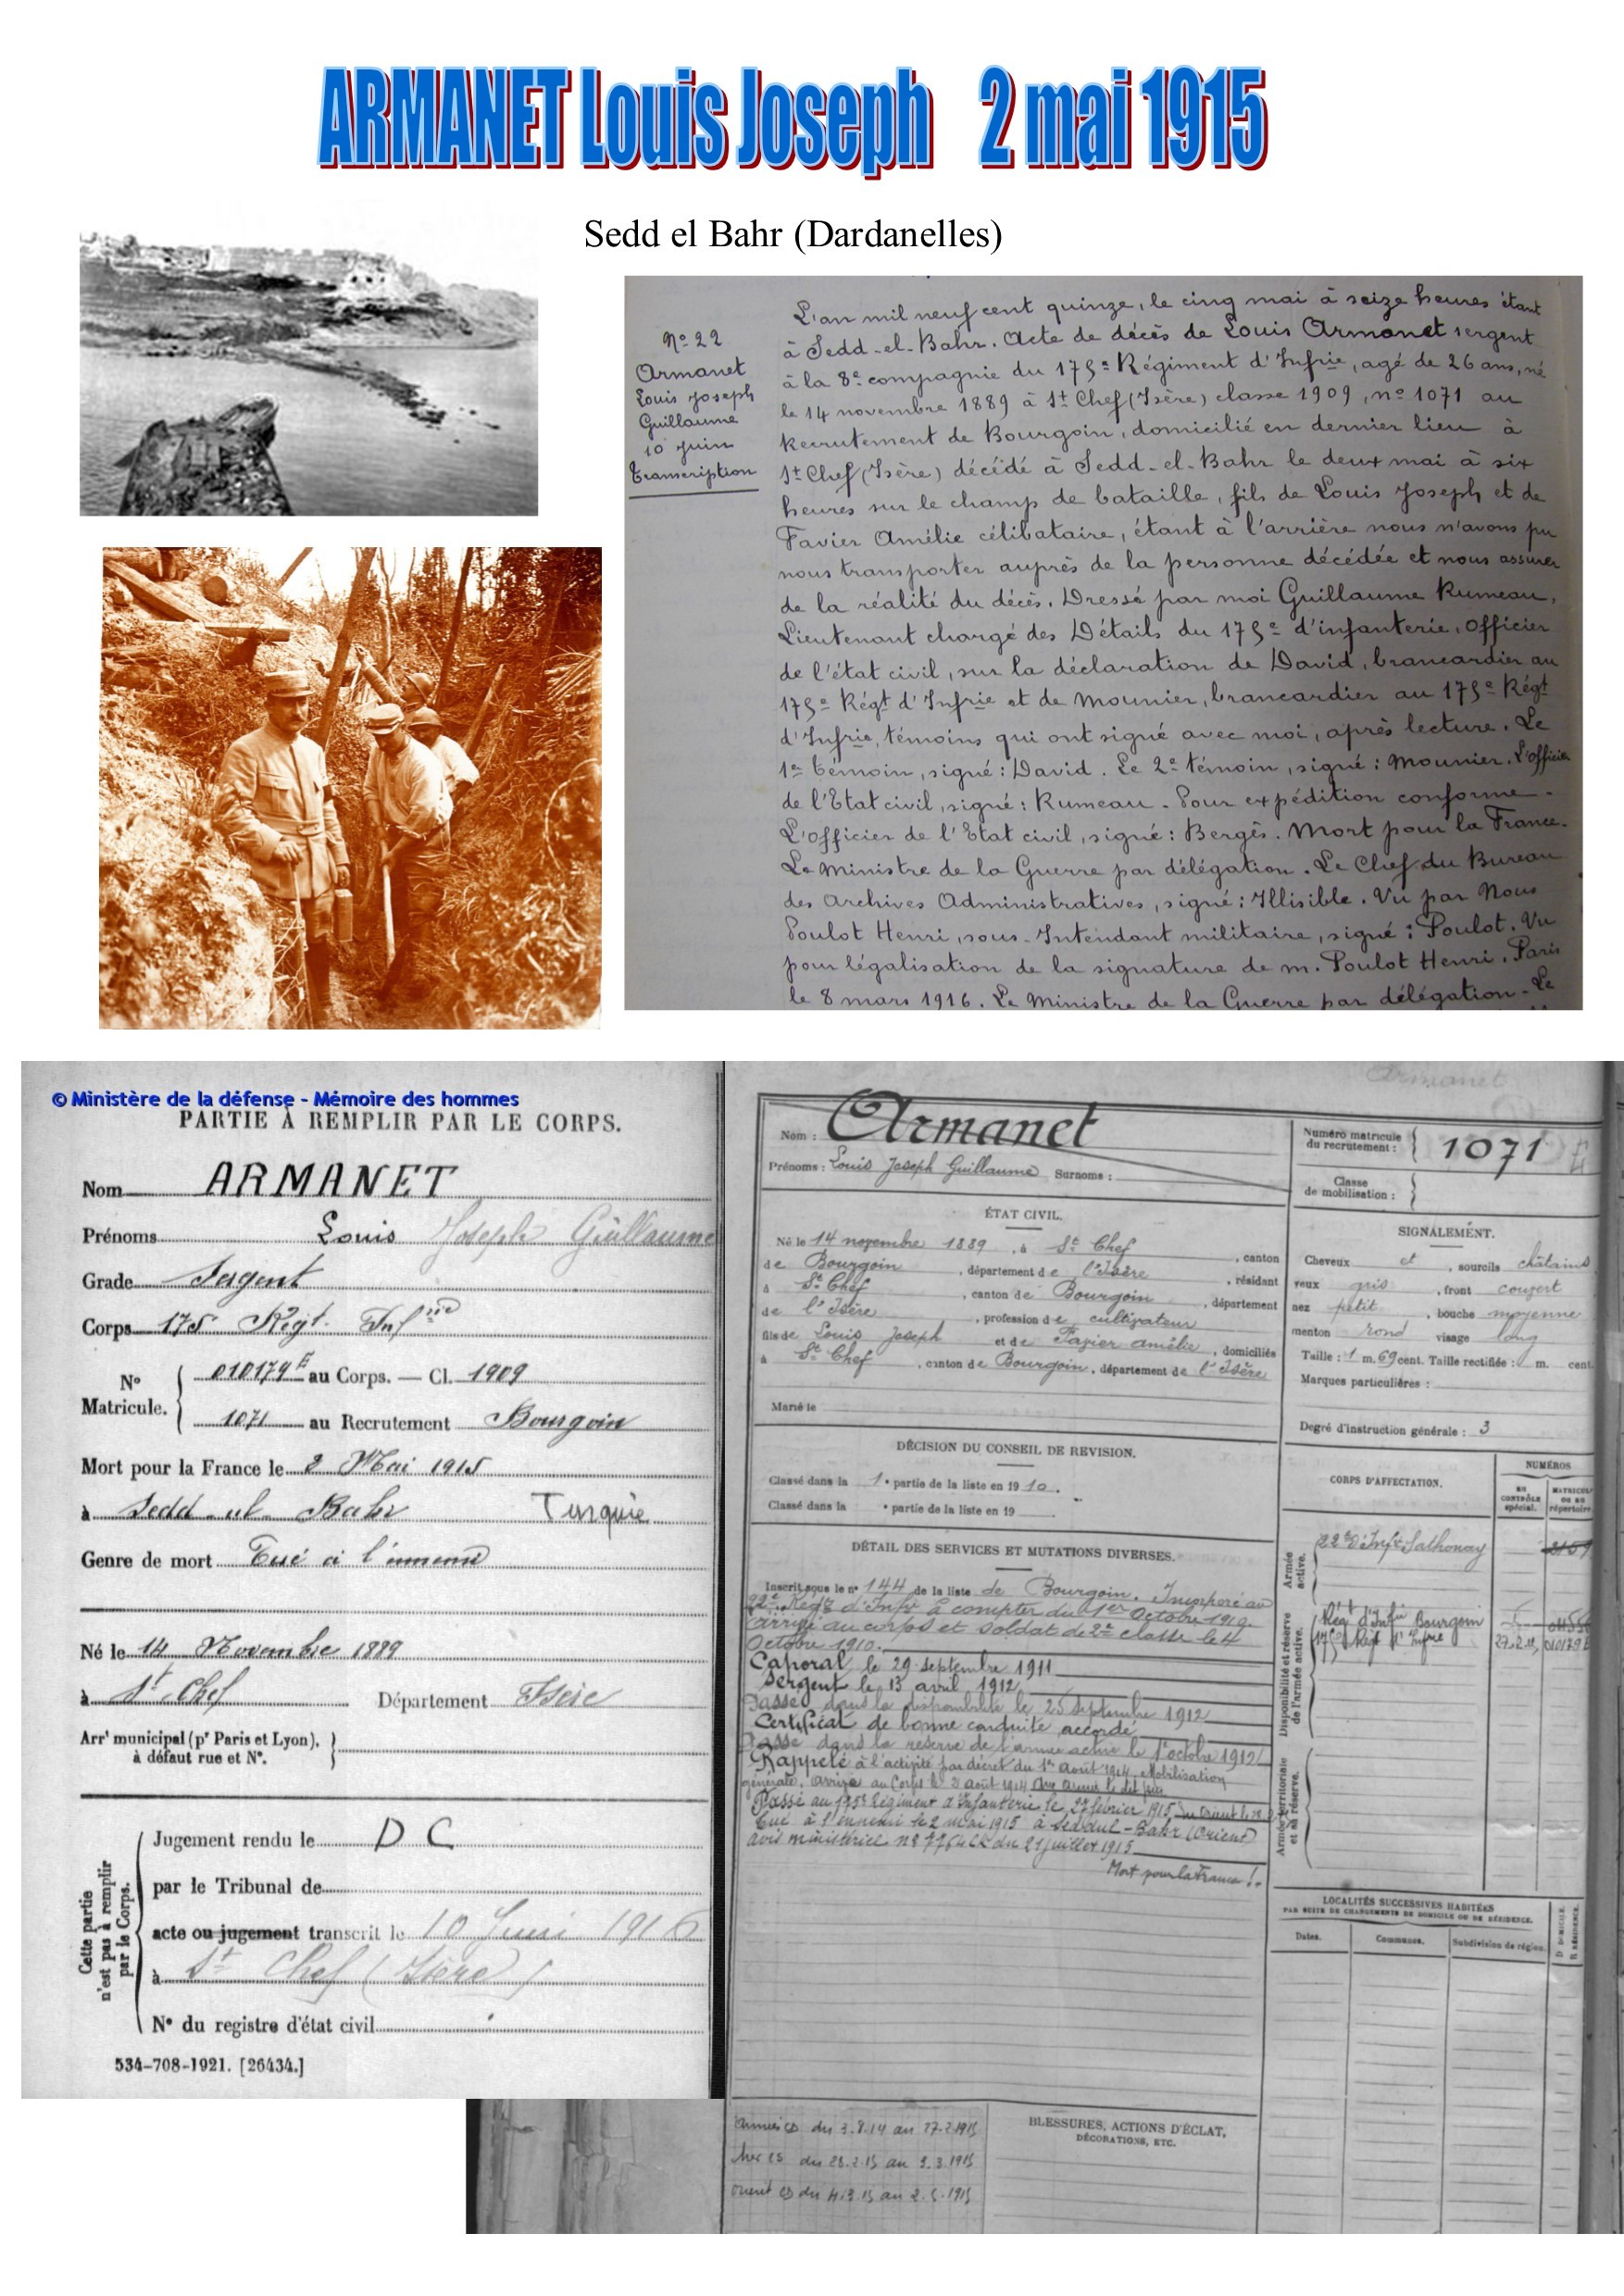 ARMANET Louis Joseph 2 mai 1915
Sedd el Bahr (Dardanelles)
Nº 22
Armanet
Louis Joseph
Guillaume
10 Juin
Transcription
L'an mil neuf cent quinze, le cinq mai à seize heures étant
à Sedd-el-Bahr. Acte de décès de Louis Armanet sergent
à la 8e compagnie du 175e Régiment d'Infrie, agé de 26 ans, né
le 14 novembre 1889 à St Chef (Isère) classe 1909, nº 1071 au
recrutement de Bourgoin, domicilié en dernier lieu à
St Chef (Isère) décédé à Sedd-el-Bahr le deux mai à six
heures sur le champ de bataille, fils de Louis Joseph et de
Favier Amélie célibataire, étant à l'arrière nous n'avons pu
nous transporter auprès de la personne décédée et nous assurer
de la réalité du décès. Dressé par moi Guillaume Rumeau,
Lieutenant chargé des Détails du 175e d'infanterie, Officier
de l'état civil, sur la déclaration de David, brancardier au
175e Régt d'Infrie et de Mounier, brancardier au 175e Régt
d'Infrie, témoins qui ont signé avec moi, après lecture. Le
1e témoin, signé : David. Le 2e témoin, signé : Mounier. L'officier
de l'Etat civil, signé : Rumeau - Pour expédition conforme -
L'officier de l'Etat civil, signé : Bergès. Mort pour la France.
Le Ministre de la Guerre par délégation. Le Chef du Bureau
des Archives Administratives, signé : Illisible. Vu par Nous
Poulot Henri, sous-Intendant militaire, signé : Poulot. Vu
pour légalisation de la signature de M. Poulot Henri. Paris
le 8 mars 1916. Le Ministre de la Guerre par délégation - Le
© Ministère de la défense - Mémoire des hommes
PARTIE À REMPLIR PAR LE CORPS.
Nom ARMANET
Prénoms Louis Joseph Guillaume
Grade Sergent
Corps 175 Régt. Infrie
Nº Matricule. 010179E au Corps. — Cl. 1909
1071 au Recrutement Bourgoin
Mort pour la France le 2 Mai 1915
à Sedd-ul-Bahr Turquie
Genre de mort Tué à l'ennemi
Né le 14 Novembre 1889
à St Chef Département Isère
Arrt municipal (pr Paris et Lyon),
à défaut rue et Nº.
Cette partie
n'est pas à remplir
par le Corps.
Jugement rendu le DC
par le Tribunal de
acte ou jugement transcrit le 10 Juin 1916
à St Chef (Isère)
Nº du registre d'état civil
534-708-1921. [26434.]
Armanet
Nom : Armanet
Prénoms : Louis Joseph Guillaume Surnoms :
Numéro matricule
du recrutement : 1071
Classe
de mobilisation :
ÉTAT CIVIL.
Né le 14 novembre 1889, à St Chef, canton
de Bourgoin, département de l'Isère, résidant
à St Chef, canton de Bourgoin, département
de l'Isère, profession de cultivateur
fils de Louis Joseph et de Favier Amélie, domiciliés
à St Chef, canton de Bourgoin, département de l'Isère
Marié le
SIGNALEMENT.
Cheveux et, sourcils châtains
yeux gris, front couvert
nez petit, bouche moyenne
menton rond visage long
Taille : 1 m. 69 cent. Taille rectifiée : m. cent.
Marques particulières :
Degré d'instruction générale : 3
DÉCISION DU CONSEIL DE REVISION.
Classé dans la 1e partie de la liste en 1910.
Classé dans la e partie de la liste en 19
DÉTAIL DES SERVICES ET MUTATIONS DIVERSES.
Inscrit sous le nº 144 de la liste de Bourgoin. Incorporé au
22e Régt d'Infie à compter du 1er Octobre 1910.
Arrivé au corps et soldat de 2e classe le 4
Octobre 1910.
Caporal le 29 septembre 1911
Sergent le 13 avril 1912
Passé dans la disponibilité le 25 septembre 1912
Certificat de bonne conduite accordé
Passé dans la réserve de l'armée active le 1 octobre 1912
Rappelé à l'activité par décret du 1er Août 1914. Mobilisation
générale. Arrivé au Corps le 3 août 1914
Passé au 175e Régiment d'Infanterie le 27 février 1915
Tué à l'ennemi le 2 mai 1915 à Sedd-ul-Bahr (Orient)
avis ministériel nº du 21 juillet 1915
Mort pour la France !.
CORPS D'AFFECTATION.
NUMÉROS
AU CONTRÔLE spécial.
MATRICULE OU AU répertoire.
Armée
active.
22e d'Infie Sathonay
Disponibilité et réserve
de l'armée active.
Régt d'Infie Bourgoin
175e Régt d'Infrie 27.2.15 010179E
Armée territoriale
et sa réserve.
LOCALITÉS SUCCESSIVES HABITÉES
PAR SUITE DE CHANGEMENTS DE DOMICILE OU DE RÉSIDENCE.
Dates. Communes. Subdivision de région. D. DOMICILE. R. RÉSIDENCE.
du 3.8.14 au 27.2.1915
du 28.2.15 au 3.3.1915
Orient du 4.3.15 au 2.5.1915
BLESSURES, ACTIONS D'ÉCLAT,
DÉCORATIONS, ETC.